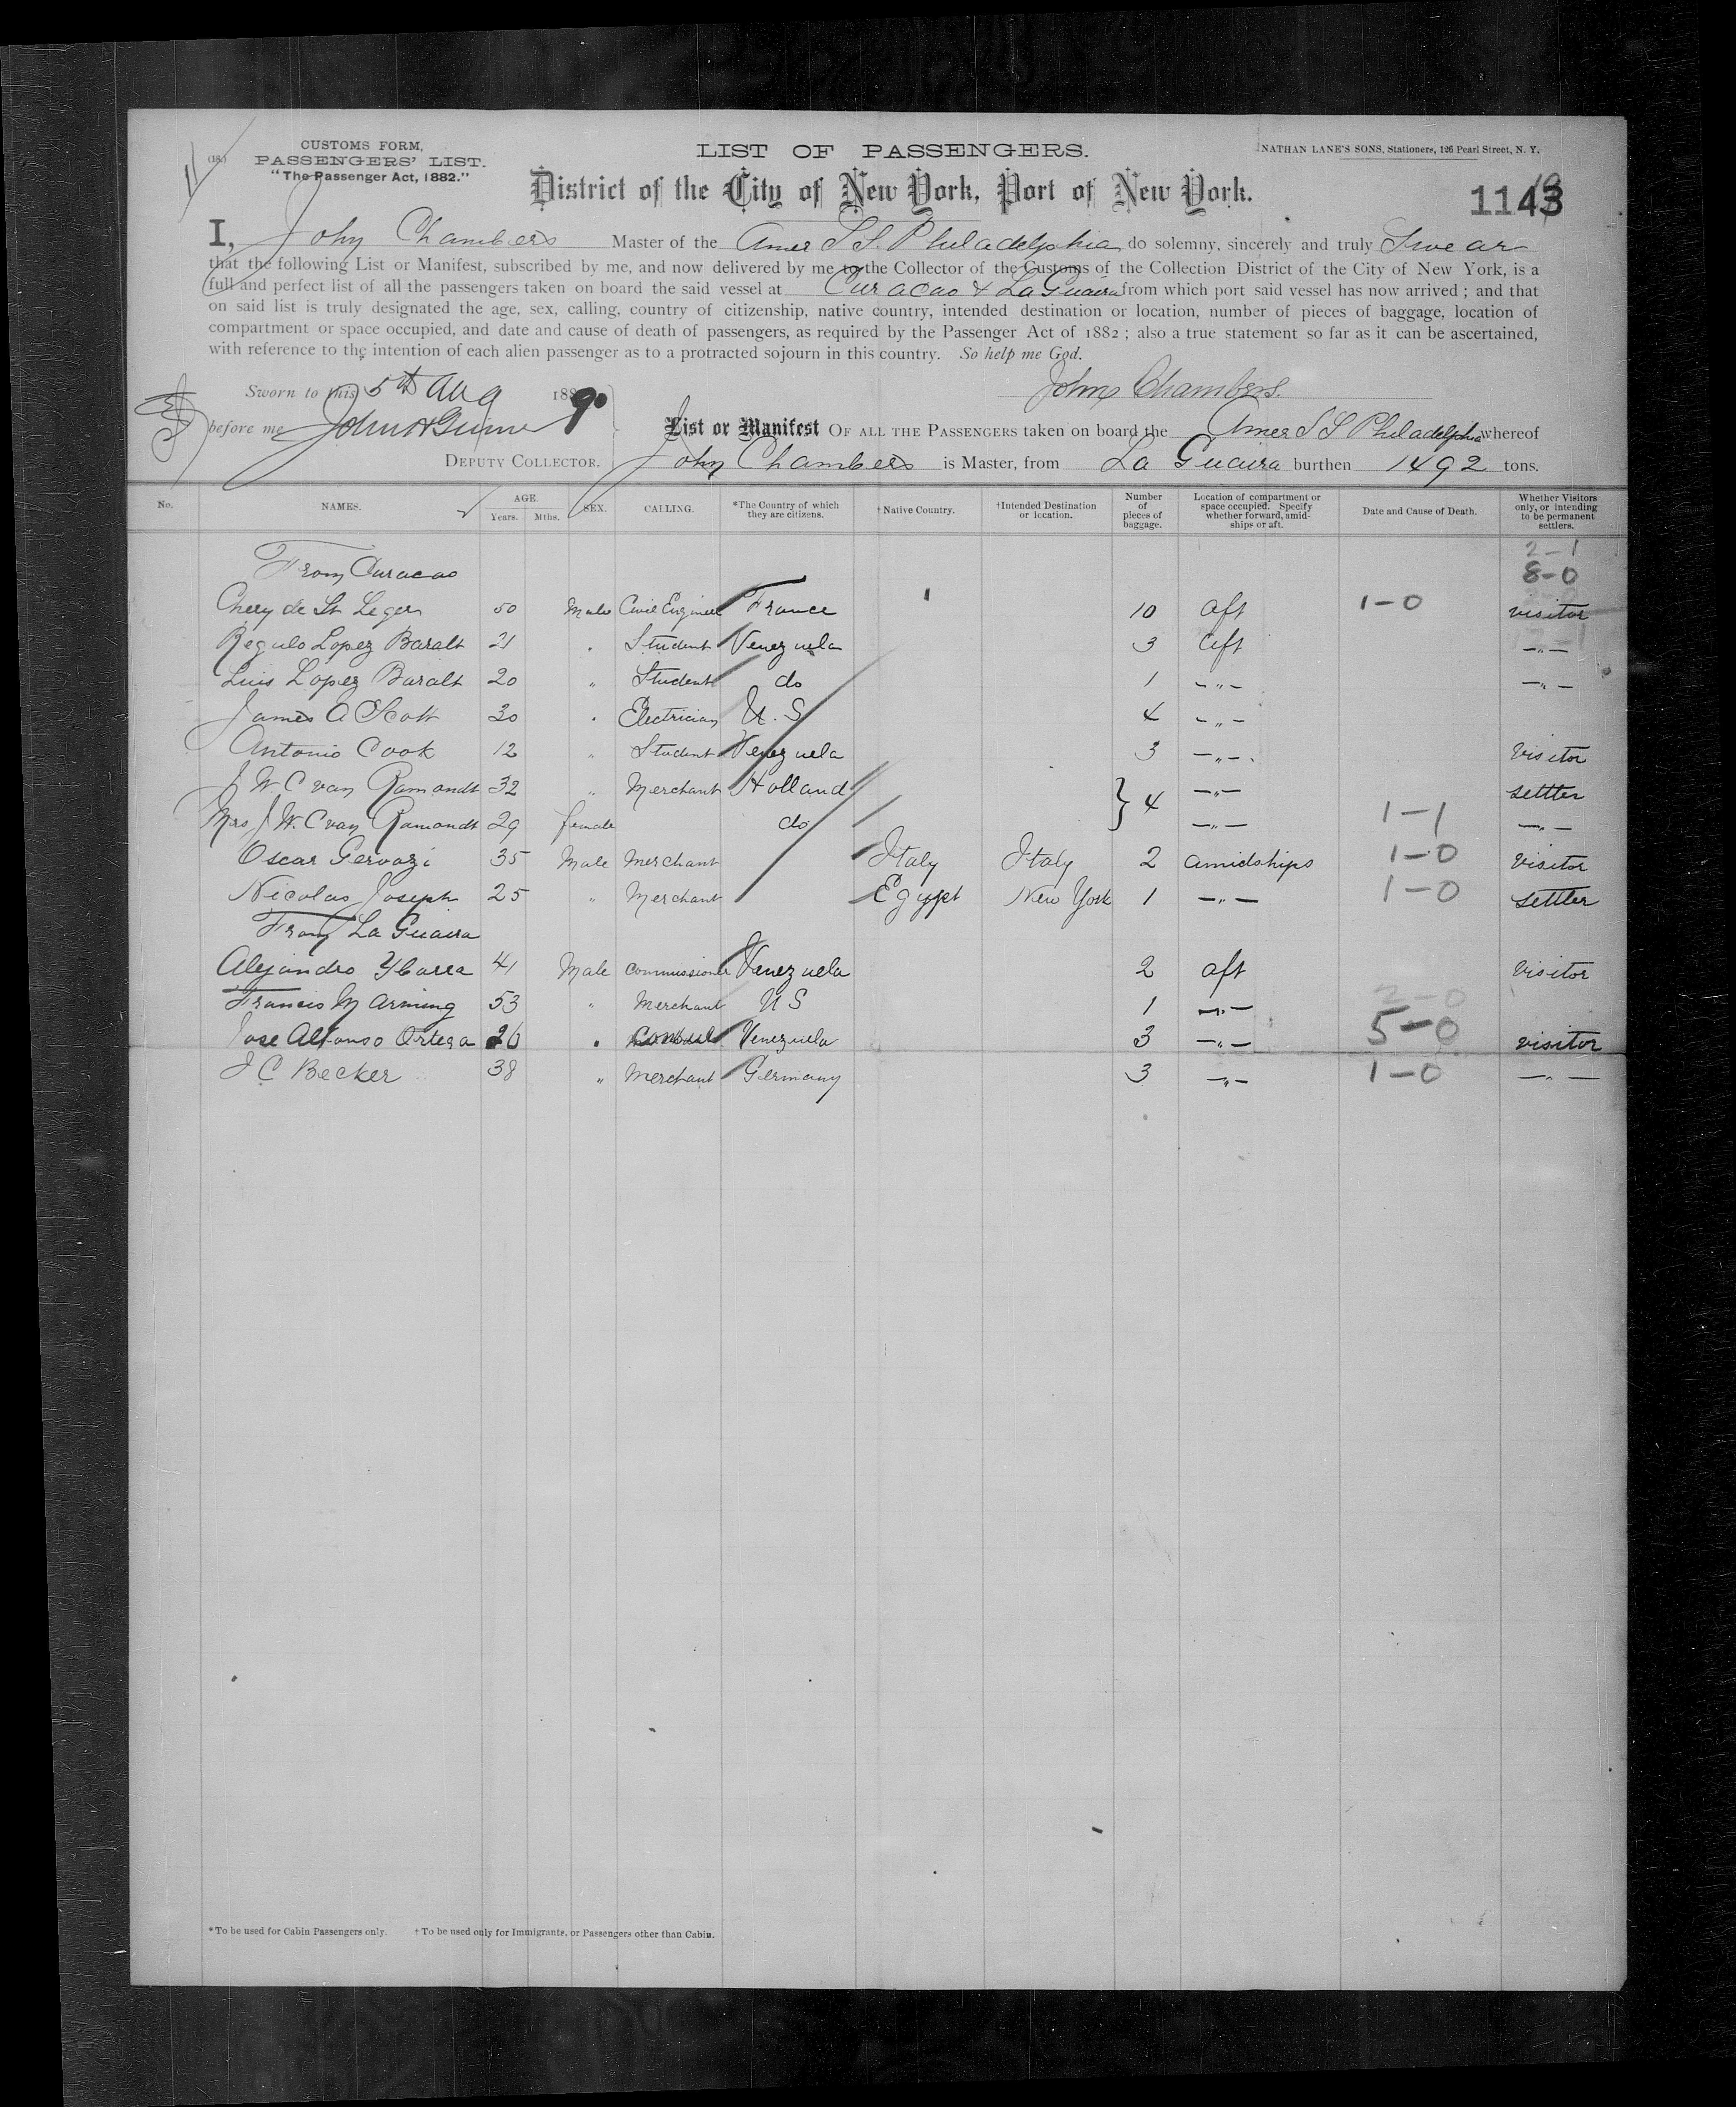 (18.)
CUSTOMS FORM,
PASSENGERS' LIST.
"The Passenger Act, 1882."
LIST OF PASSENGERS.
NATHAN LANE'S SONS, Stationers, 126 Pearl Street, N. Y.
District of the City of New York, Port of New York.
1143
I, John Chambers Master of the Amer S.S. Philadelphia do solemny, sincerely and truly Swear
that the following List or Manifest, subscribed by me, and now delivered by me to the Collector of the Customs of the Collection District of the City of New York, is a
full and perfect list of all the passengers taken on board the said vessel at Curacao & La Guaira from which port said vessel has now arrived ; and that
on said list is truly designated the age, sex, calling, country of citizenship, native country, intended destination or location, number of pieces of baggage, location of
compartment or space occupied, and date and cause of death of passengers, as required by the Passenger Act of 1882 ; also a true statement so far as it can be ascertained,
with reference to the intention of each alien passenger as to a protracted sojourn in this country. So help me God.
Sworn to this 5th Aug 1889
John Chambers.
before me John H
DEPUTY COLLECTOR.
List or Manifest OF ALL THE PASSENGERS taken on board the Amer S S Philadelphia whereof
John Chambers is Master, from La Guaira burthen 1492 tons.
No. NAMES. AGE. Years. Mths. SEX. CALLING. *The Country of which they are citizens. †Native Country. †Intended Destination or location. Number of pieces of baggage. Location of compartment or space occupied. Specify whether forward, amidships or aft. Date and Cause of Death. Whether Visitors only, or intending to be permanent settlers.
2-1
From Curacao 8-0
Chery de St Leger 50 Male Civil Engineer France 10 aft 1-0 visitor
Regulo Lopez Baralt 21 " Student Venezuela 3 aft -"-
Luis Lopez Baralt 20 " Student do 1 -"- -"-
James A Scott 30 " Electrician U. S 4 -"-
Antonio Cook 12 " Student Venezuela 3 -"- visitor
J W. C van Romondt 32 " Merchant Holland 4 -"- settler
Mrs J W. C van Romondt 29 female do -"- 1-1 -"-
Oscar Gervazi 35 Male Merchant Italy Italy 2 amidships 1-0 visitor
Nicolas Joseph 25 " Merchant Egypt New York 1 -"- 1-0 settler
From La Guaira
Alejandro Ybarra 41 Male Commissioner Venezuela 2 aft visitor
Francis M Arming 53 " Merchant U S 1 -"- 2-0
Jose Alfonso Ortega 26 " Consul Venezuela 3 -"- 5-0 visitor
J C Becker 38 " Merchant Germany 3 -"- 1-0 -"-
*To be used for Cabin Passengers only. †To be used only for Immigrants, or Passengers other than Cabin.